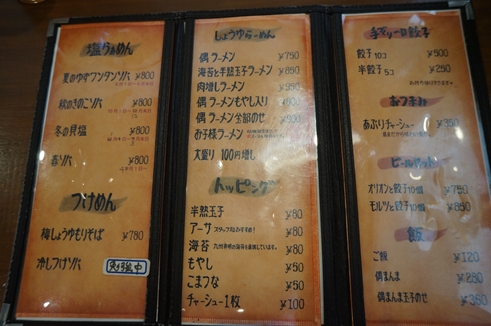 塩らぁめん
夏のゆずワンタンソバ ¥800
秋のきのこソバ ¥800
冬の貝塩 ¥800
春ソバ ¥800
つけめん
梅しょうゆもりそば ¥780
冷しつけソバ
しょうゆらーめん
偶ラーメン ¥750
海苔と半熟玉子ラーメン ¥850
肉増しラーメン ¥950
偶ラーメンもやし入り ¥800
偶ラーメン全部のせ ¥900
お子様ラーメン ¥500
大盛り 100円増し
トッピング
半熟玉子 ¥80
アーサ スタッフおすすめ! ¥80
海苔 ¥80
もやし ¥50
こまつな ¥50
チャーシュー1枚 ¥100
手作り一口餃子
餃子10コ ¥500
半餃子5コ ¥250
おつまみ
あぶりチャーシュー ¥350
ビールセット
オリオンと餃子10個 ¥750
モルツと餃子10個 ¥850
飯
ご飯 ¥120
偶まんま ¥250
偶まんま玉子のせ ¥350